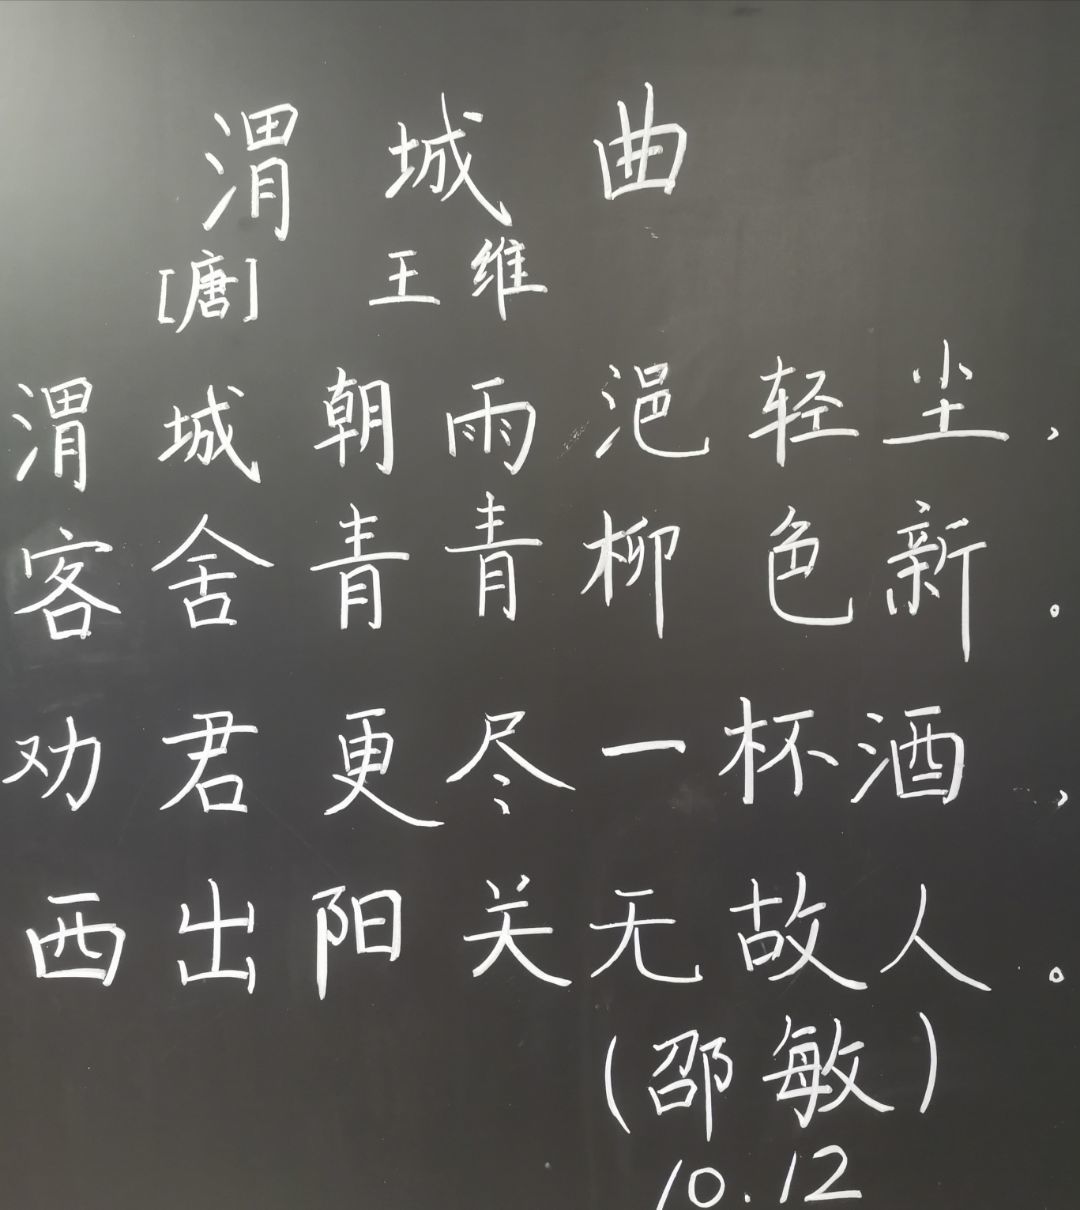 渭城曲
[唐] 王维
渭城朝雨浥轻尘，
客舍青青柳色新。
劝君更尽一杯酒，
西出阳关无故人。
(邵敏)
10.12